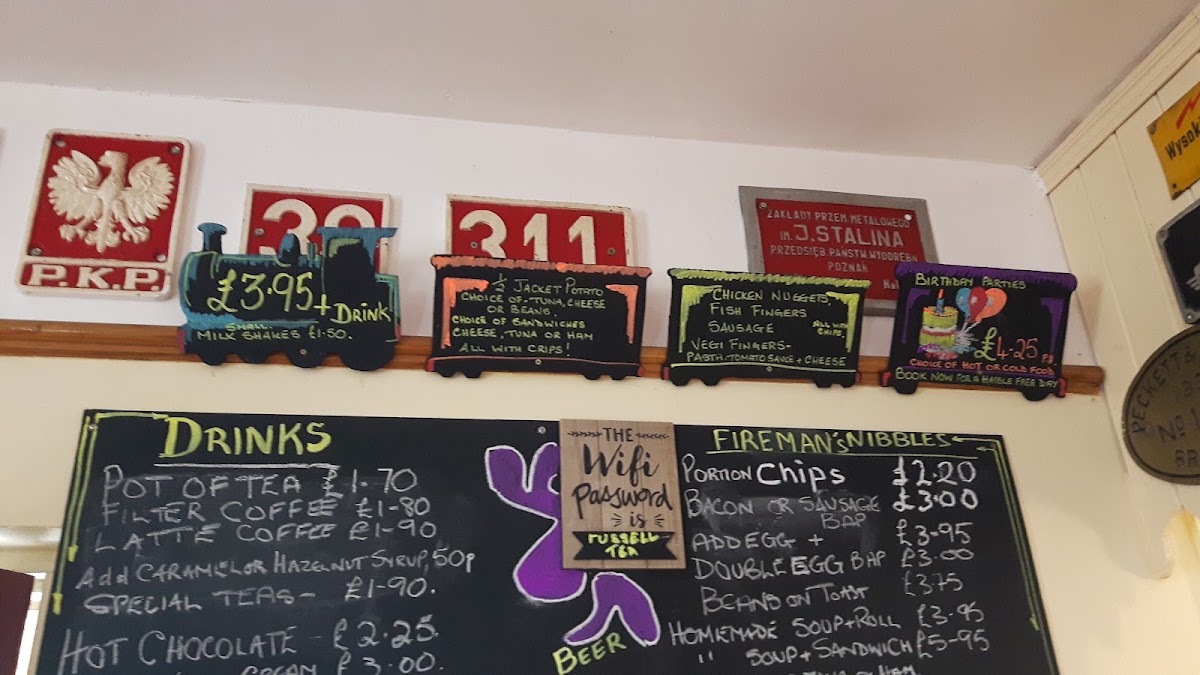 P.K.P.
39
311
ZAKŁADY PRZEM. METALOWEGO
IM. J.STALINA
PRZEDSIĘB. PAŃSTW. WYODRĘB
POZNAŃ
£3.95 + DRINK
SMALL
MILK SHAKES £1.50.
½ JACKET POTATO
CHOICE OF-TUNA, CHEESE
OR BEANS.
CHOICE OF SANDWICHES
CHEESE, TUNA OR HAM
ALL WITH CRIPS!
CHICKEN NUGGETS
FISH FINGERS
SAUSAGE
ALL WITH
CHIPS.
VEGI FINGERS-
PASTA-TOMATO SAUCE + CHEESE
BIRTHDAY PARTIES
£4.25 P.H.
CHOICE OF HOT OR COLD FOOD
BOOK NOW FOR A HASSLE FREE DAY
DRINKS
POT OF TEA £1.70
FILTER COFFEE £1-80
LATTE COFFEE £1-90
Add CARAMEL OR HAZELNUT SYRUP, 50p
SPECIAL TEAS - £1-90.
HOT CHOCOLATE - £2.25.
CREAM £3.00.
BEER
THE
Wifi
Password
is
RUSSELL
TEA
FIREMAN'S NIBBLES
PORTION CHIPS £2.20
BACON OR SAUSAGE £3.00
BAP
ADD EGG + £3-95
DOUBLE EGG BAP £3.00
BEANS ON TOAST £3.75
HOMEMADE SOUP + ROLL £3.95
" SOUP + SANDWICH £5-95
HAM
PECKETT &
No
BR